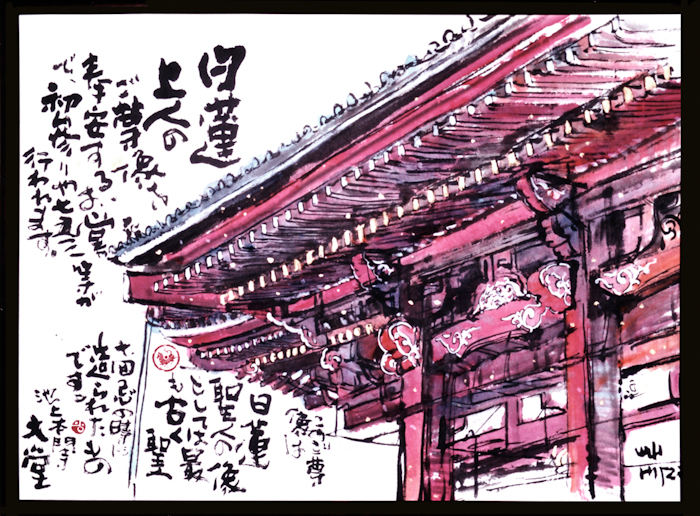 日蓮
上人の
ご尊像を
奉安する、お堂
で、初参りや七五三等が
行われます。
このご尊
像は
日蓮
聖人の像
としては最
も古く聖
人七回忌の時に
造られたもの
です。
池上本門寺
大堂